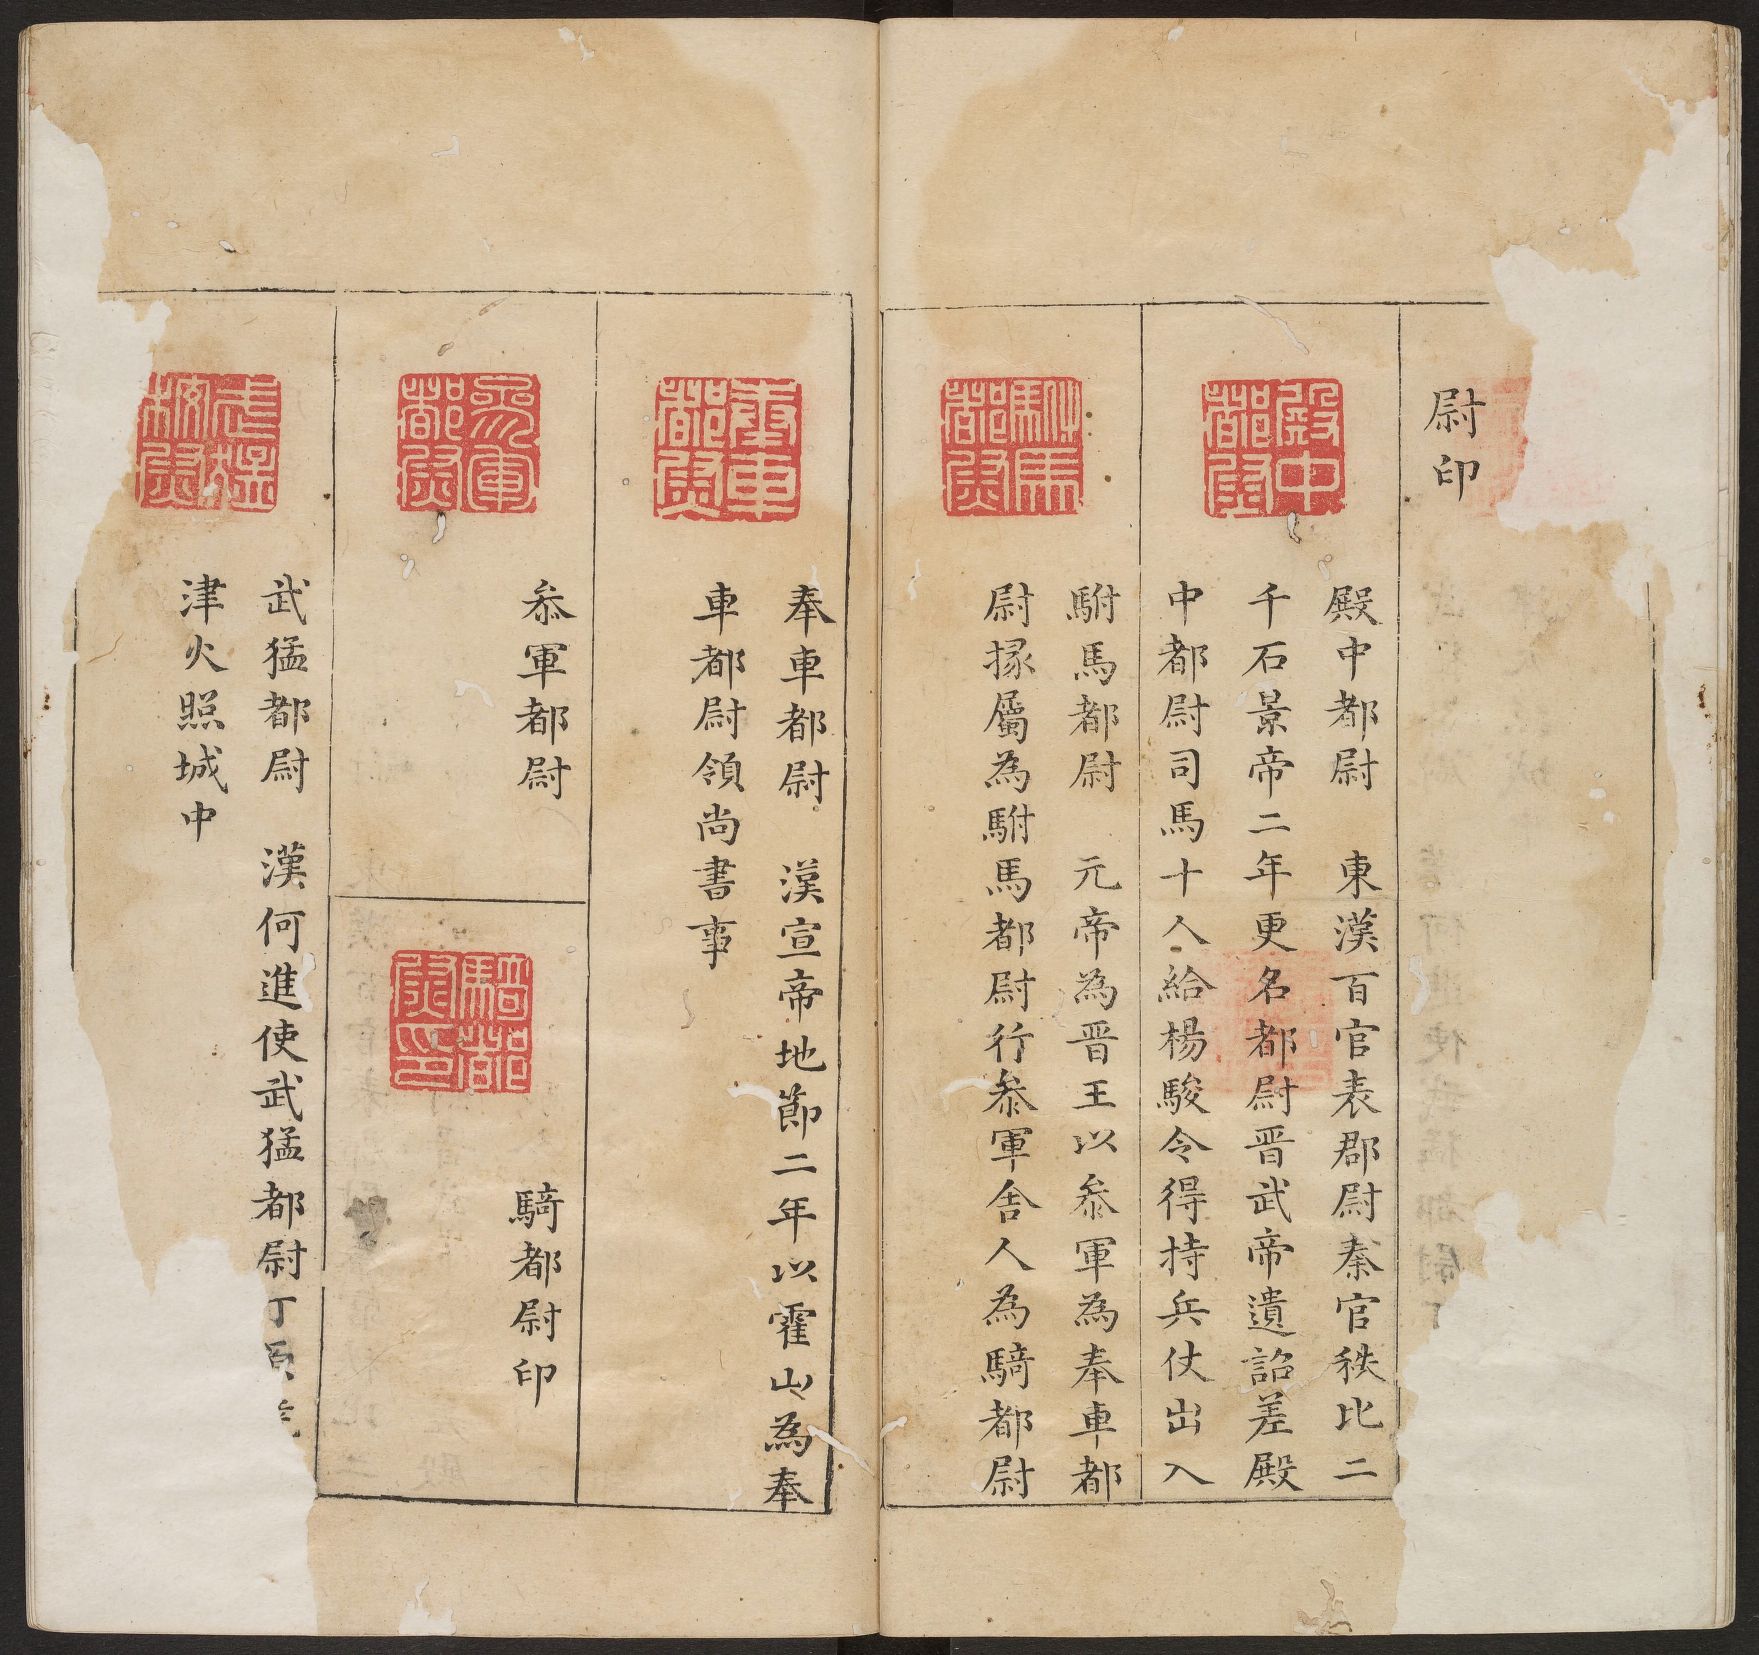 尉印
殿中都尉
殿中都尉　東漢百官表郡尉秦官秩比二
千石景帝二年更名都尉晋武帝遺詔差殿
中都尉司馬十人給楊駿令得持兵仗出入
駙馬都尉
駙馬都尉　元帝為晋王以叅軍為奉車都
尉掾屬為駙馬都尉行叅軍舎人為騎都尉
奉車都尉
奉車都尉　漢宣帝地節二年以霍山為奉
車都尉領尚書事
叅軍都尉
叅軍都尉
騎都尉印
騎都尉印
武猛都尉　漢何進使武猛都尉丁原
津火照城中